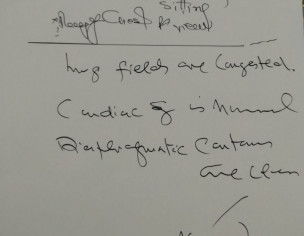 sitting
Chest
Lung fields are Congested.
Cardiac is Normal
Diaphragmatic Contours
are clear